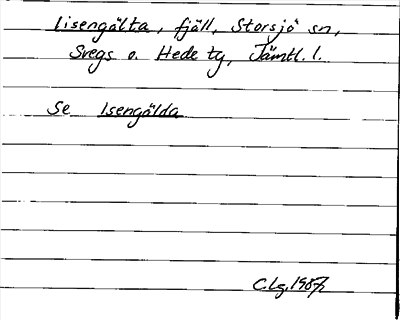 Lisengälta, fjäll, Storsjö sn,
Svegs o. Hede ty, Jämtl. l.
Se Isengälda
C.Lg.